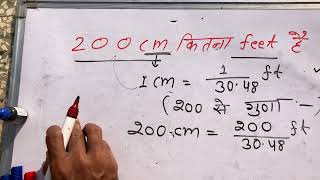 200 cm कितना feet है
1 cm = 1/30.48 ft
(200 से गुणा -)
200 cm = 200/30.48 ft